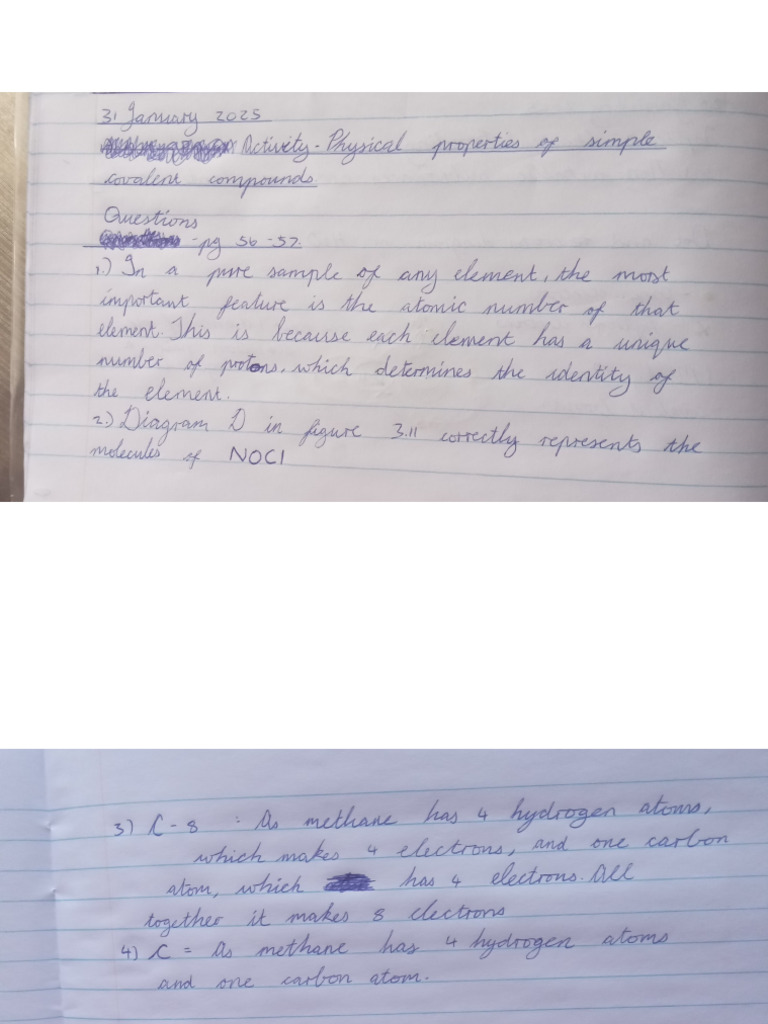 31 January 2025
Activity - Physical properties of simple
covalent compounds
Questions
- pg 56 - 57.
1.) In a pure sample of any element, the most
important feature is the atomic number of that
element. This is because each element has a unique
number of protons, which determines the identity of
the element.
2.) Diagram D in figure 3.11 correctly represents the
molecules of NOCl
3) C - 8 : As methane has 4 hydrogen atoms,
which makes 4 electrons, and one carbon
atom, which has 4 electrons. All
together it makes 8 electrons
4) C = As methane has 4 hydrogen atoms
and one carbon atom.